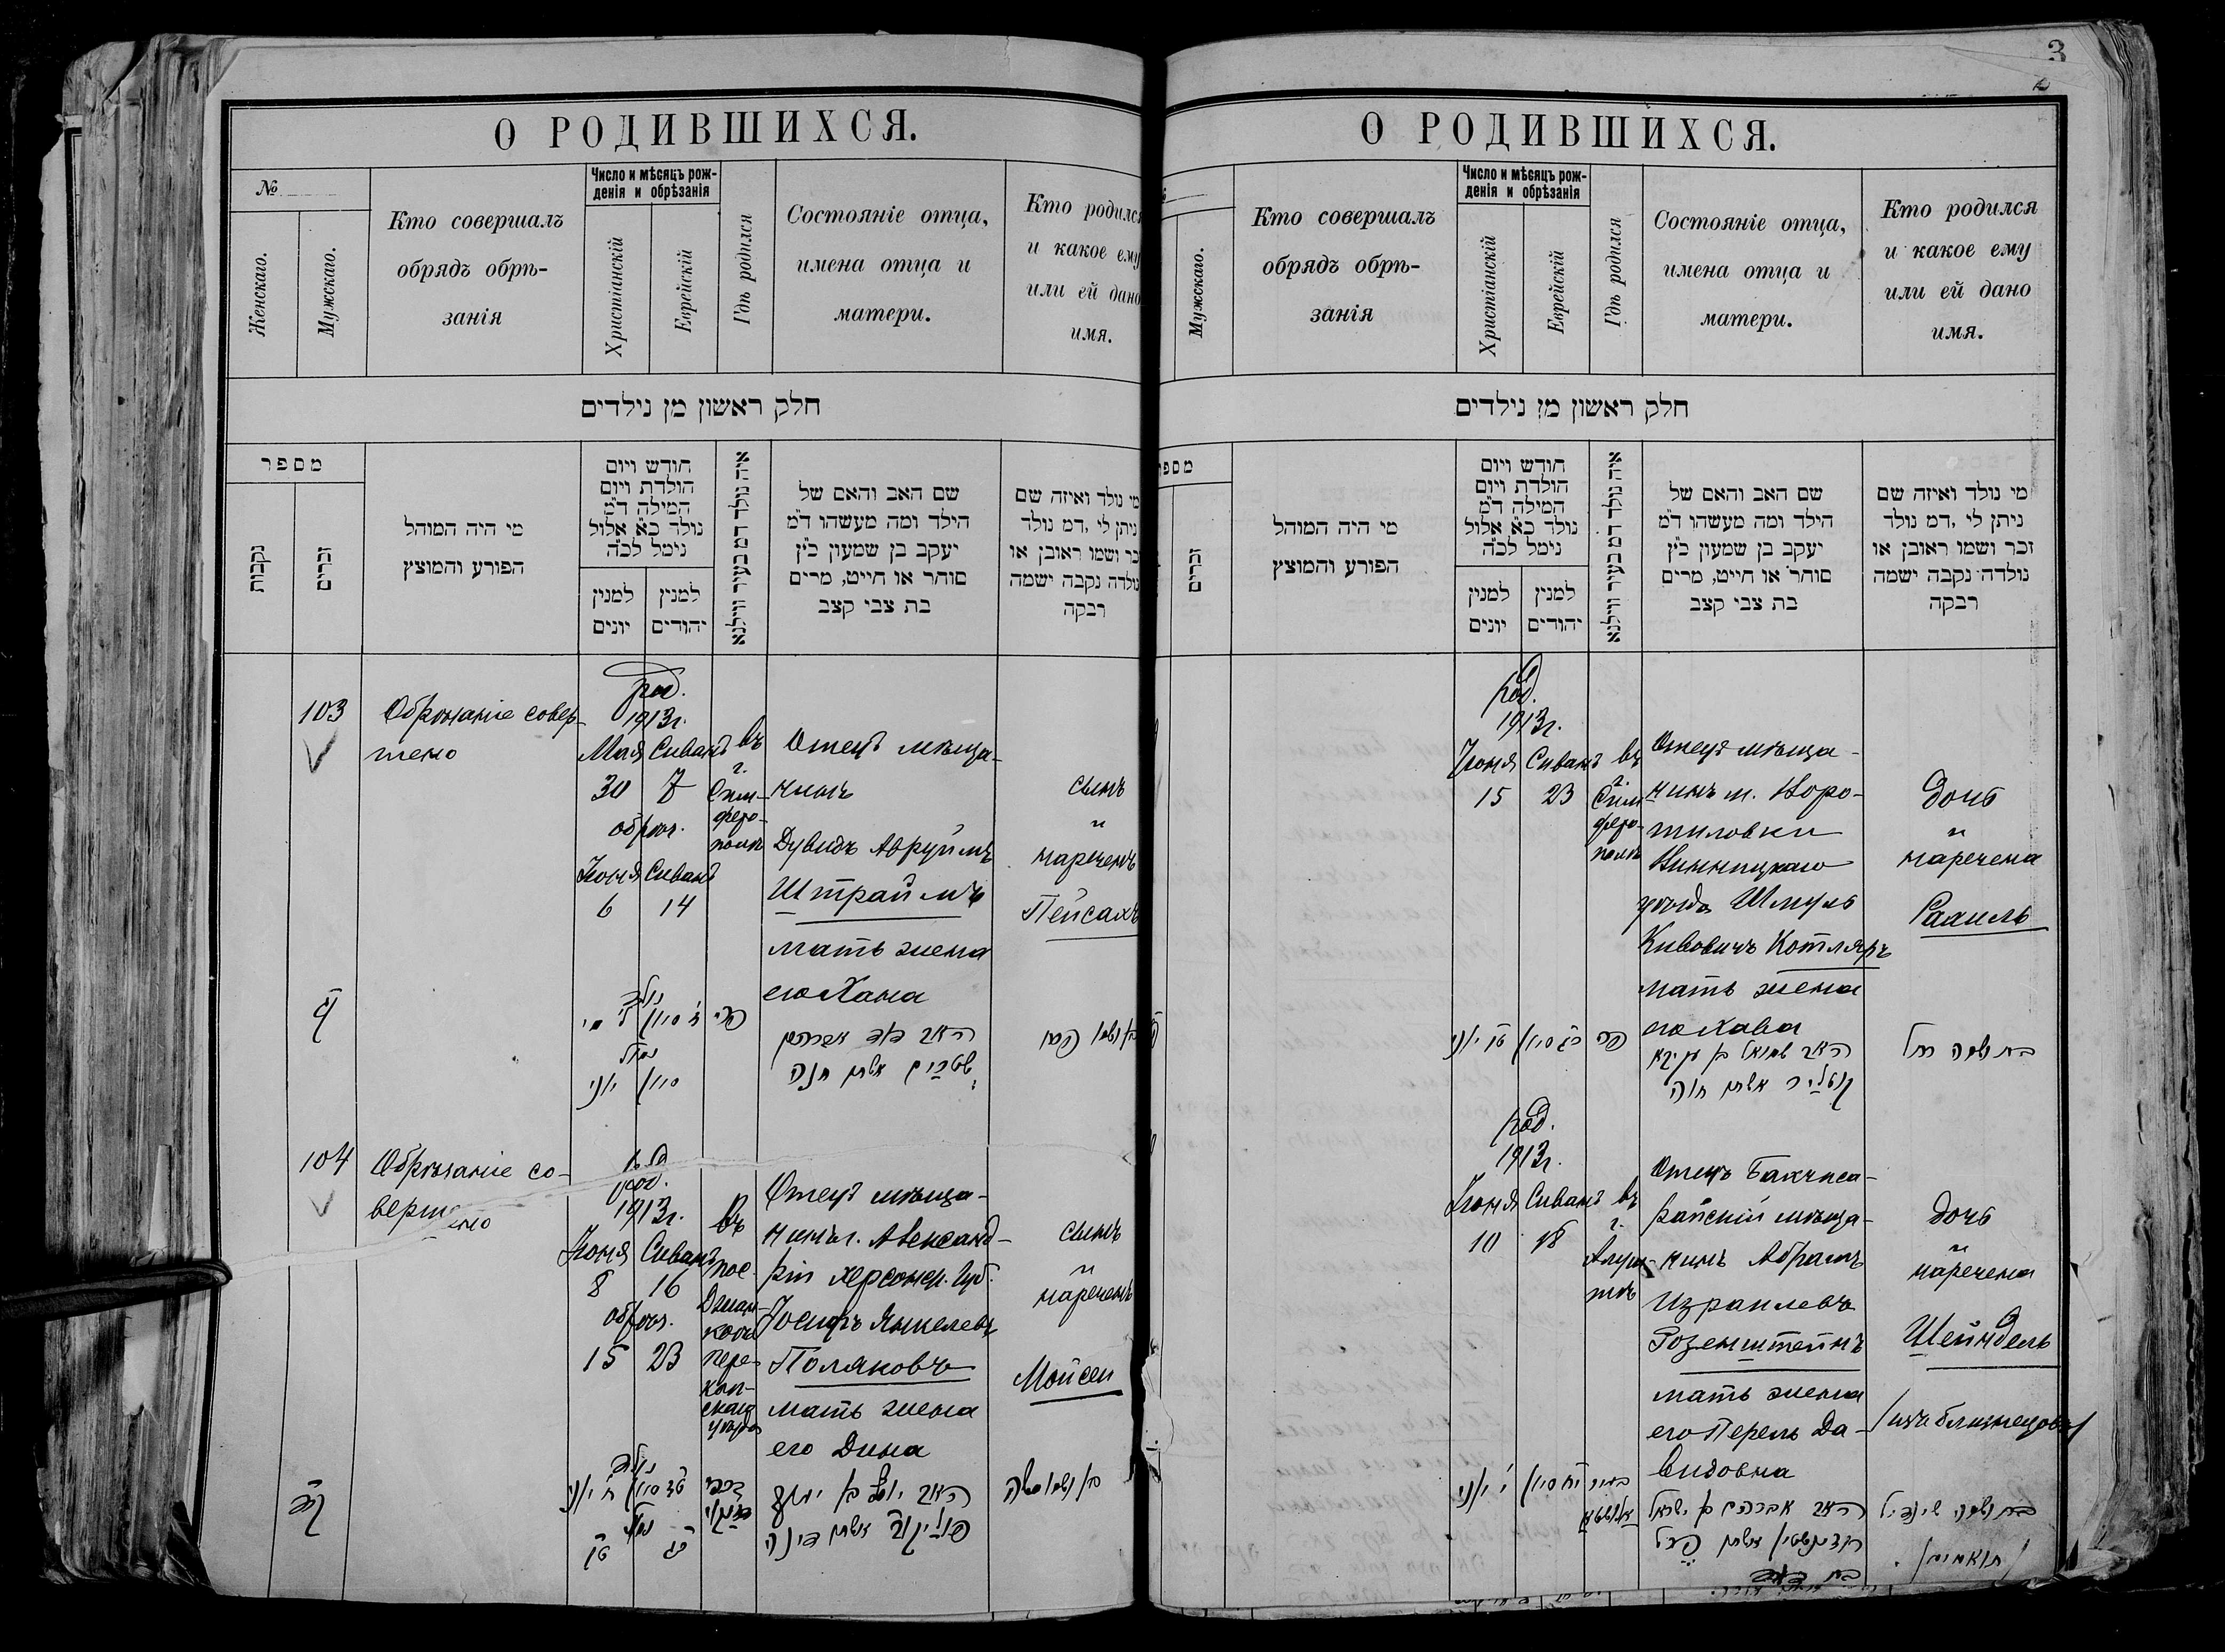 О РОДИВШИХСЯ.
№
Женскаго.
Мужскаго.
Кто совершалъ
обрядъ обрѣ-
занія
Число и мѣсяцъ рож-
денія и обрѣзанія
Христіанскій
Еврейскій
Гдѣ родился
Состояніе отца,
имена отца и
матери.
Кто родился
и какое ему
или ей дано
имя.
חלק ראשון מן נילדים
מספר
נקבות
זכרים
מי היה המוהל
הפורע והמוצץ
חודש ויום
הולדת ויום
המילה ד"מ
נולד כ"א אלול
נימל לכ"ה
למנין
יונים
למנין
יהודים
איה נולד דמ בעיר ווילנא
שם האב והאם של
הילד ומה מעשהו ד"מ
יעקב בן שמעון כ"ץ
סוחר או חייט, מרים
בת צבי קצב
מי נולד ואיזה שם
ניתן לי ,דמ נולד
זכר ושמו ראובן או
נולדה נקבה ישמה
רבקה
103
Обрѣзаніе совер-
шено
род.
1913г.
Мая Сиванъ
30 7
обрѣз.
Іюня Сиванъ
6 14
въ
г.
Сим-
феро-
полѣ
Отецъ мѣща-
нинъ
Дувидъ Авруймъ
Штраймъ
мать жена
его Хана
сынъ
и
нареченъ
Пейсахъ
נולד
ל מאי
ז סיון
נמול
יוני
סיון
האב דוד אברהם
שטרים אשתו חנה
בן ושמו פסח
104
Обрѣзаніе со-
вершено
род.
1913г.
Іюня Сиванъ
8 16
обрѣз.
15 23
въ
пос.
Джан-
кой
Пере-
коп-
скаго
уѣзда
Отецъ мѣща-
нинъ г. Александ-
ріи Херсонск. Губ.
Іосифъ Янкелевъ
Поляковъ
мать жена
его Дина
сынъ
и
нареченъ
Мойсей
קד
נולד
ח יוני
טז סיון
נמול
טו
כג
האב יוסף בן יעקב
פוליקוב אשתו דינה
בן ושמו משה
3
О РОДИВШИХСЯ.
Мужскаго.
Кто совершалъ
обрядъ обрѣ-
занія
Число и мѣсяцъ рож-
денія и обрѣзанія
Христіанскій
Еврейскій
Гдѣ родился
Состояніе отца,
имена отца и
матери.
Кто родился
и какое ему
или ей дано
имя.
חלק ראשון מן נילדים
מספר
זכרים
מי היה המוהל
הפורע והמוצץ
חודש ויום
הולדת ויום
המילה ד"מ
נולד כ"א אלול
נימל לכ"ה
למנין
יונים
למנין
יהודים
איה נולד דמ בעיר ווילנא
שם האב והאם של
הילד ומה מעשהו ד"מ
יעקב בן שמעון כ"ץ
סוחר או חייט, מרים
בת צבי קצב
מי נולד ואיזה שם
ניתן לי ,דמ נולד
זכר ושמו ראובן או
נולדה נקבה ישמה
רבקה
род.
1913г.
Іюня Сиванъ
15 23
въ
г.
Сим-
феро-
полѣ
Отецъ мѣща-
нинъ м. Воро-
шиловки
Винницкаго
уѣзда Шмуль
Кивовичъ Котляръ
мать жена
его Хава
дочь
и
наречена
Рахиль
טו יוני
כג סיון
האב שמואל בן עקיבא
קוטליר אשתו חוה
בת ושמה רחל
род.
1913г.
Іюня Сиванъ
10 18
въ
г.
Алуш-
тѣ
Отецъ Бахчиса-
райскій мѣща-
нинъ Абрамъ
Израилевъ
Розенштейнъ
мать жена
его Перель Да-
видовна
дочь
и
наречена
Шейндель
/изъ близнецовъ/
י יוני
יח סיון
בעיר
אלושטא
האב אברהם בן ישראל
רוזנשטיין אשתו פערל
בת דוד
בת ושמה שיינדיל
/תאומים/.